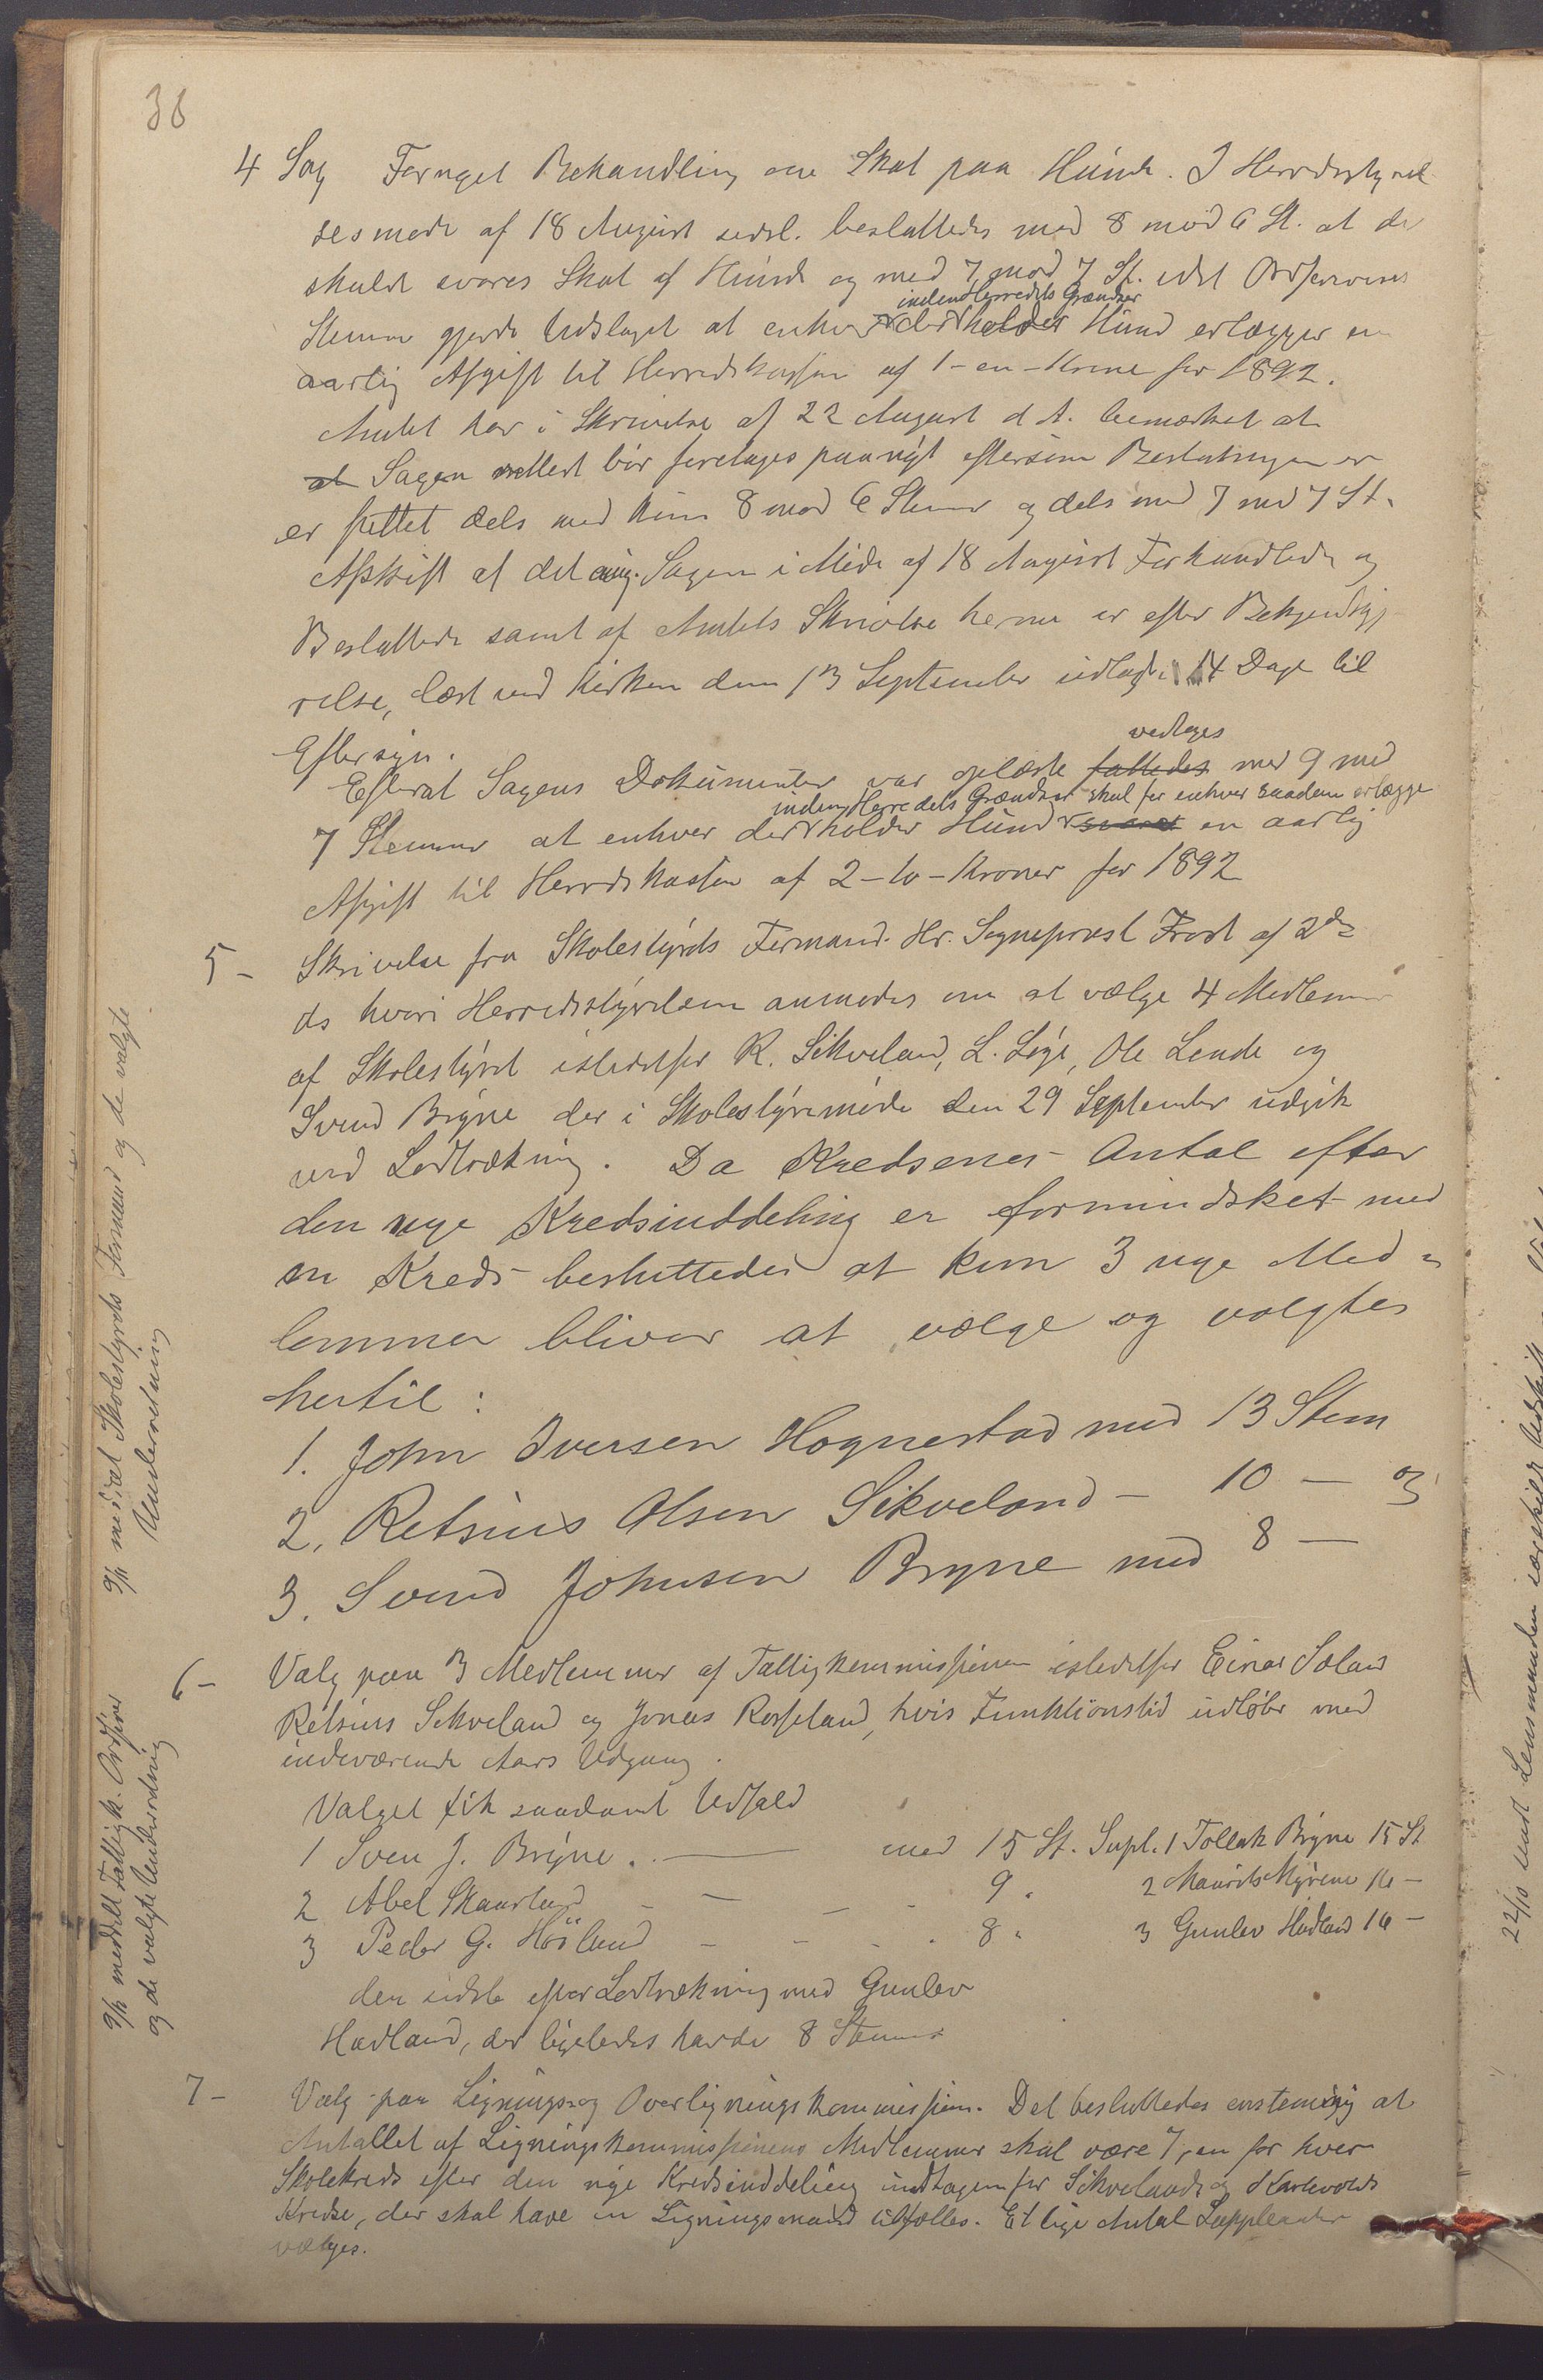 36
4 Sag Fornyet Behandling om Skat paa Hunde. I Herredsstyrel-
sesmøde af 18 August sidstl. besluttedes med 8 mod 6 St. at der
skulde svares Skat af Hunde og med 7 mod 7 St. idet Ordførerens
indenHerredets Grændser
Stemme gjorde Udslaget at enhver der holder Hund erlægger en
aarlig Afgift til Herredskassen af 1-en-Krone for 1892.
Amtet har i Skrivelse af 22 August d A. bemærket at
at Sagen rettest bør foretages paanyt eftersom Beslutningen er
er fattet dels med kun 8 mod 6 Stemmer og dels med 7 mod 7 St.
Afskrift af det ang. Sagen i Møde af 18 August Forhandlede og
Besluttede samt af Amtets Skrivelse herom er efter Bekjendtgjø-
relse, læst ved Kirken den 13 September udlagt i 14 Dage til
Eftersyn.
vedtoges
Efterat Sagens Dokumenter var oplæste fattedes med 9 mod
inden Herredets Grændser skal for enhver saadan erlægge
7 Stemmer at enhver der holder Hund svarer en aarlig
Afgift til Herredskassen af 2-to-Kroner for 1892
5- Skrivelse fra Skolestyrets Formand Hr. Sogneprest Frost af 2de
ds hvori Herredsstyrelsen anmodes om at vælge 4 Medlemmer
af Skolestyret istedetfor R. Sikveland, L. Lye, Ole Lende og
Svend Bryne der i Skolestyremøde den 29 September udgik
ved Lodtrækning. Da Kredsenes Antal efter
den nye Kredsinddeling er formindsket med
en Kreds besluttedes at kun 3 nye Med-
lemmer bliver at vælge og valgtes
hertil:
1. John Iversen Hognestad med 13 Stem
2. Retsius Olsen Sikveland - 10 - og
3. Svend Johnsen Bryne med 8 -
9/11 medd. at Skolestyrets Formand og de valgte
Underretning
6- Valg paa 3 Medlemmer af Fattigkommissionen istedetfor Einar Soland
Retsius Sikveland og Jonas Rosseland, hvis Funktionstid udløber med
indeværende Aars Udgang.
Valget fik saadant Udfald
1 Sven J. Bryne. - med 15 St. Supl. 1 Tollak Bryne 15 St
2 Abel Skaarland - - - 9 " 2 Maurits Myrene 16 -
3 Peder G. Höiland - - - 8 " 3 Gunlev Hadland 16 -
den sidste efter Lodtrækning med Gunlev
Hadland, der ligeledes havde 8 Stemmer
9/11 meddelt Fattigk. Ordfører
og de valgte Underretning
7- Valg paa Lignings og Overligningskommission. Det besluttedes enstemig at
Antallet af Ligningskommissionens Medlemmer skal være 7, en for hver
Skolekreds efter den nye Kredsinddeling undtagen for Sikvelands og Skarlevolds
Kredse, der skal have en Ligningsmand tilfælles. Et lige Antal Suppleanter
vælges.
22/10 sendt Lensmanden